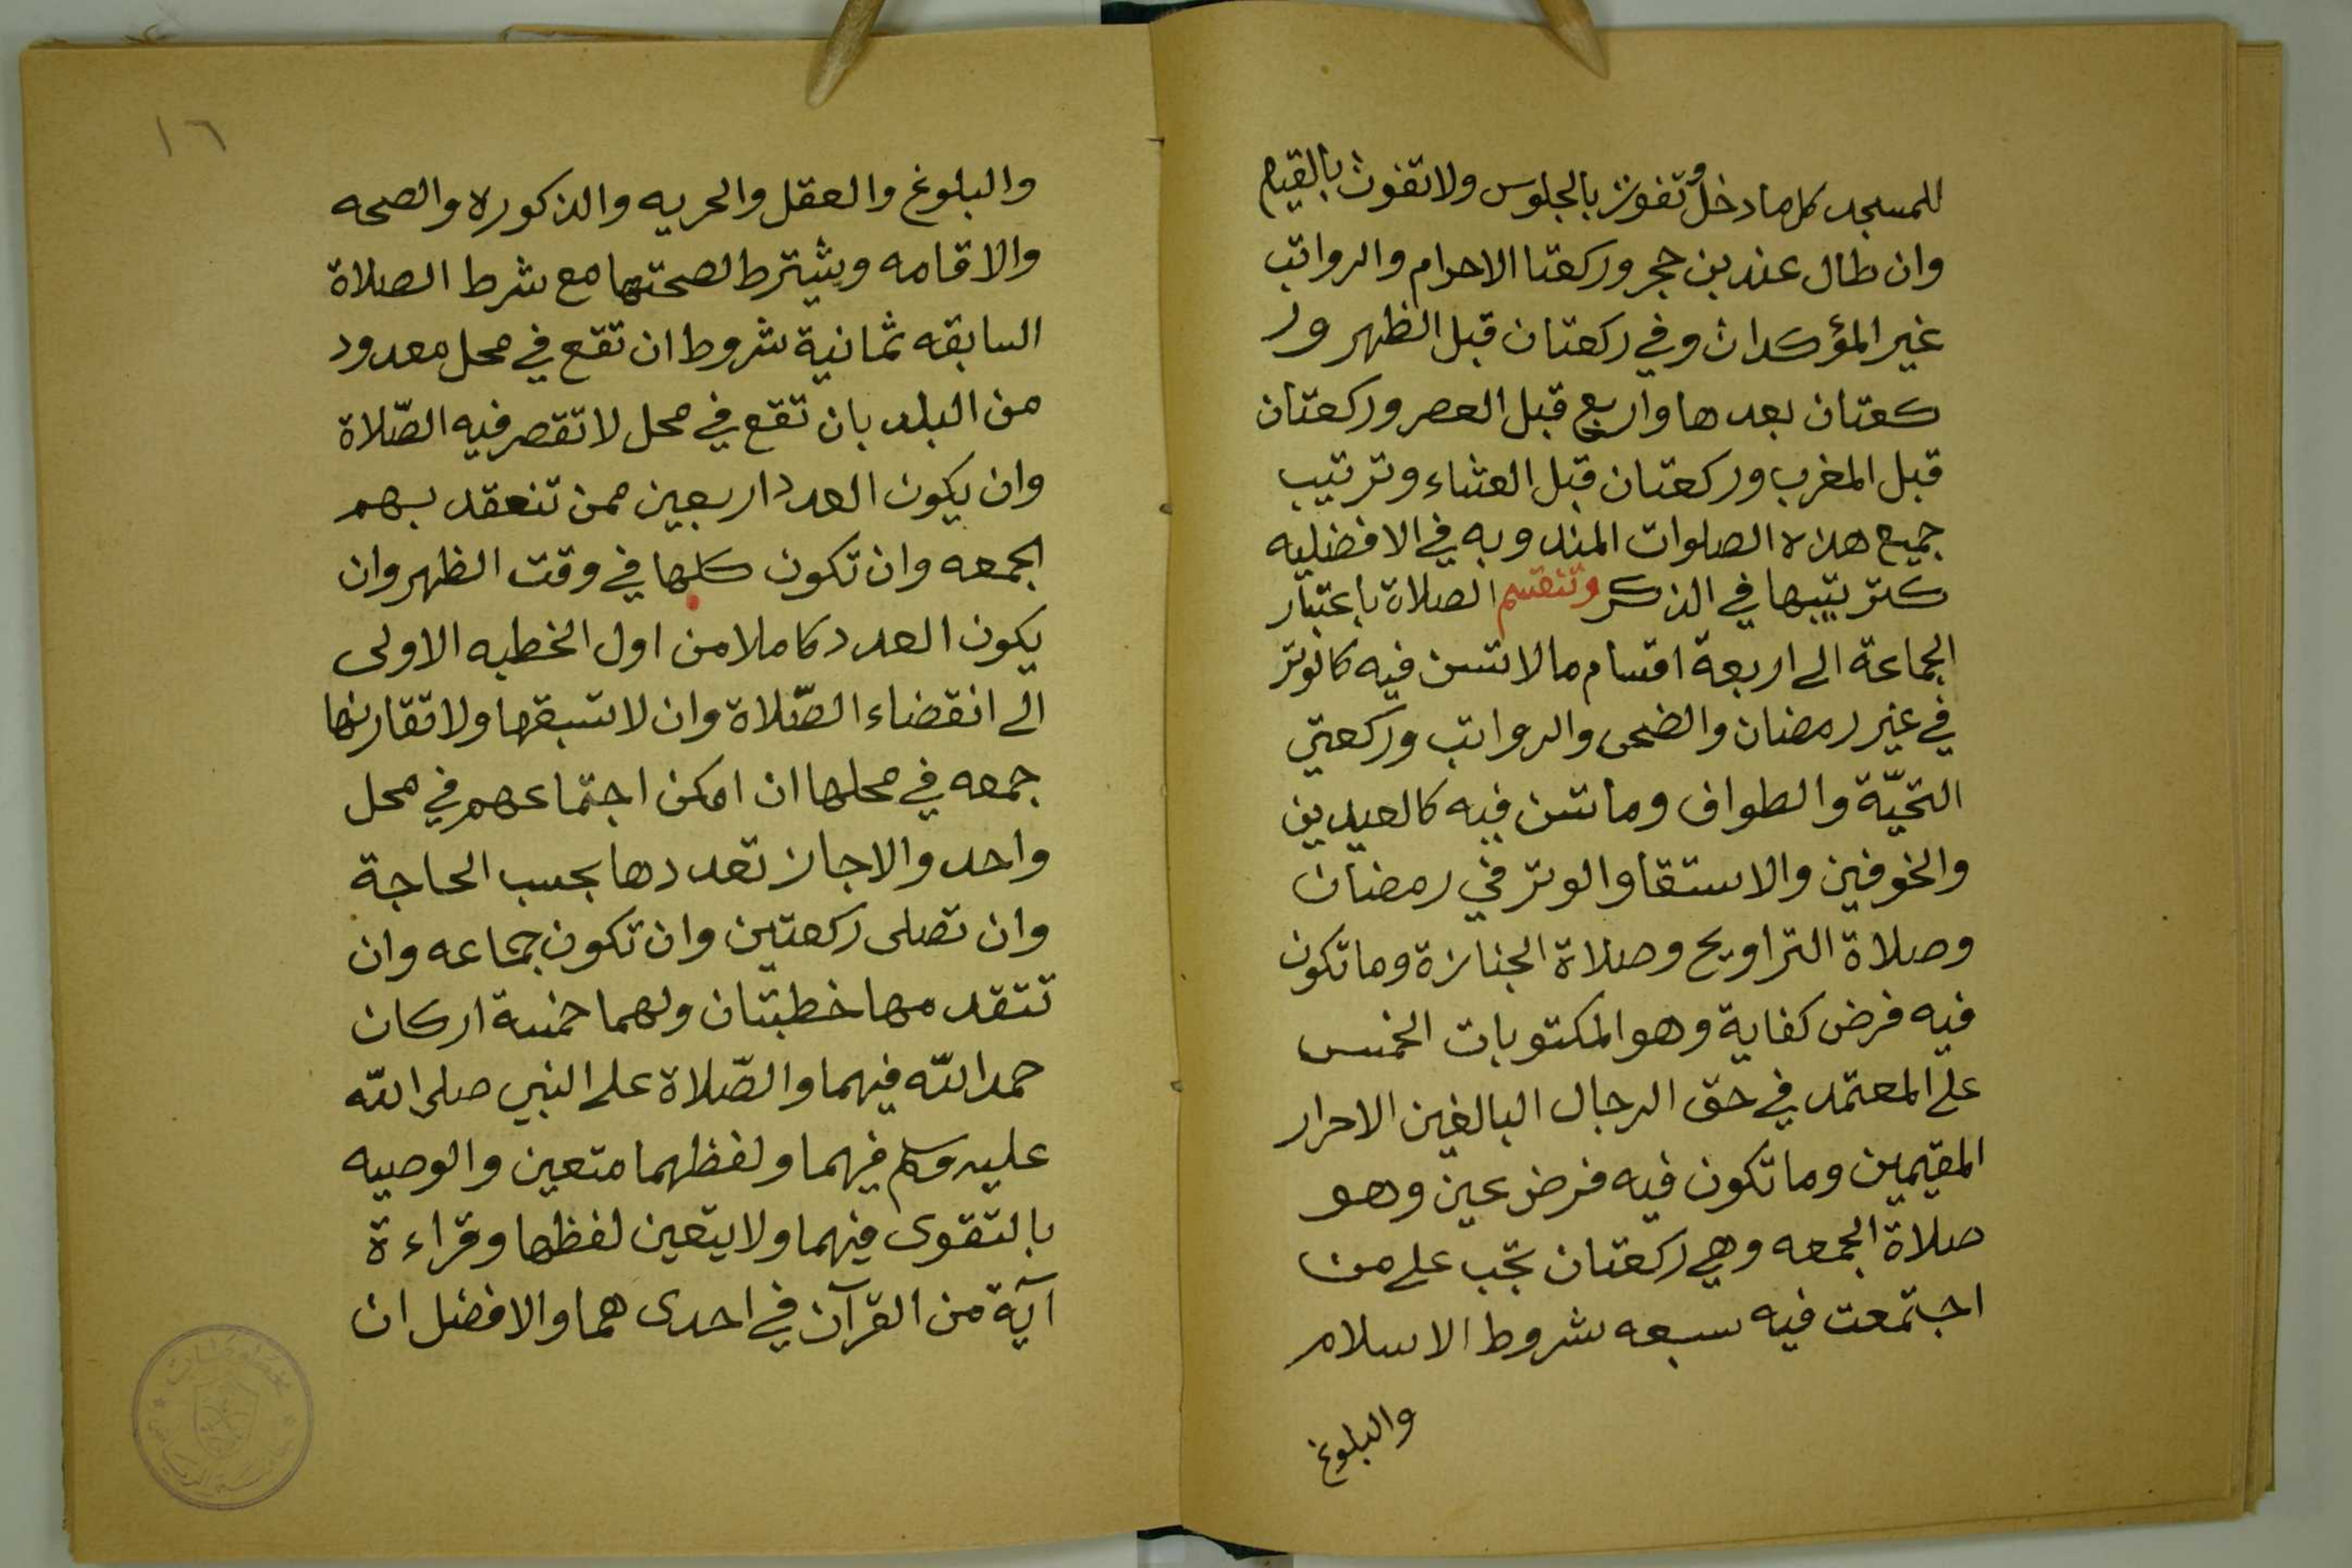 للمسجد كل ما دخل وتفوت بالجلوس ولا تفوت بالقيام
وان طال عند بن حجر وركعتا الاحرام والرواتب
غير المؤكدات وفي ركعتان قبل الظهر ور
كعتان بعدها واربع قبل العصر وركعتان
قبل المغرب وركعتان قبل العشاء وترتيب
جميع هذه الصلوات المندوبه في الافضليه
كترتيبها في الذكر وتنقسم الصلاة باعتبار
الجماعة الى اربعة اقسام ما لا تسن فيه كالوتر
في غير رمضان والضحى والرواتب وركعتي
التحيّة والطواف وما تسن فيه كالعيدين
والخوفين والاستقا والوتر في رمضان
وصلاة التراويح وصلاة الجنازة وما تكون
فيه فرض كفاية وهو المكتوبات الخمس
على المعتمد في حق الرجال البالغين الاحرار
المقيمين وما تكون فيه فرض عين وهو
صلاة الجمعه وهي ركعتان تجب على من
اجتمعت فيه سبعه شروط الاسلام
والبلوغ
١٦
والبلوغ والعقل والحريه والذكوره والصحه
والاقامه ويشترط لصحتها مع شرط الصلاة
السابقه ثمانية شروط ان تقع في محل معدود
من البلد بان تقع في محل لا تقصر فيه الصّلاة
وان يكون العدد اربعين ممن تنعقد بهم
الجمعه وان تكون كلها في وقت الظهر وان
يكون العدد كاملا من اول الخطبه الاولى
الى انقضاء الصّلاة وان لا تسبقها ولا تقارنها
جمعه في محلها ان امكن اجتماعهم في محل
واحد والا جاز تعددها بحسب الحاجة
وان تصلى ركعتين وان تكون جماعه وان
تتقدمها خطبتان ولهما خمسة اركان
حمد الله فيهما والصّلاة على النبي صلى الله
عليه وسلم فيهما ولفظهما متعين والوصيه
بالتقوى فيهما ولا يتعين لفظها وقراءة
آية من القرآن في احدى هما والافضل ان